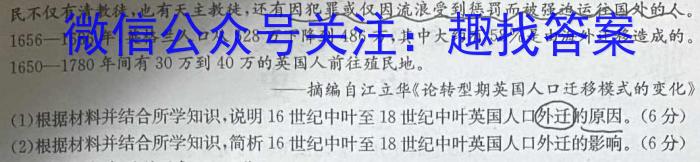 民不仅有清教徒,也有天主教徒,还有因犯罪或仅因流浪受到惩罚而被强迫运往国外的人。
微信公众号关注:趣找答案
1656—
年
造成的。
1650—1780年间有30万到40万的英国人前往殖民地。
——摘编自江立华《论转型期英国人口迁移模式的变化》
(1)根据材料并结合所学知识,说明16世纪中叶至18世纪中叶英国人口外迁的原因。(6分)
(2)根据材料并结合所学知识,简析16世纪中叶至18世纪中叶英国人口外迁的影响。(6分)